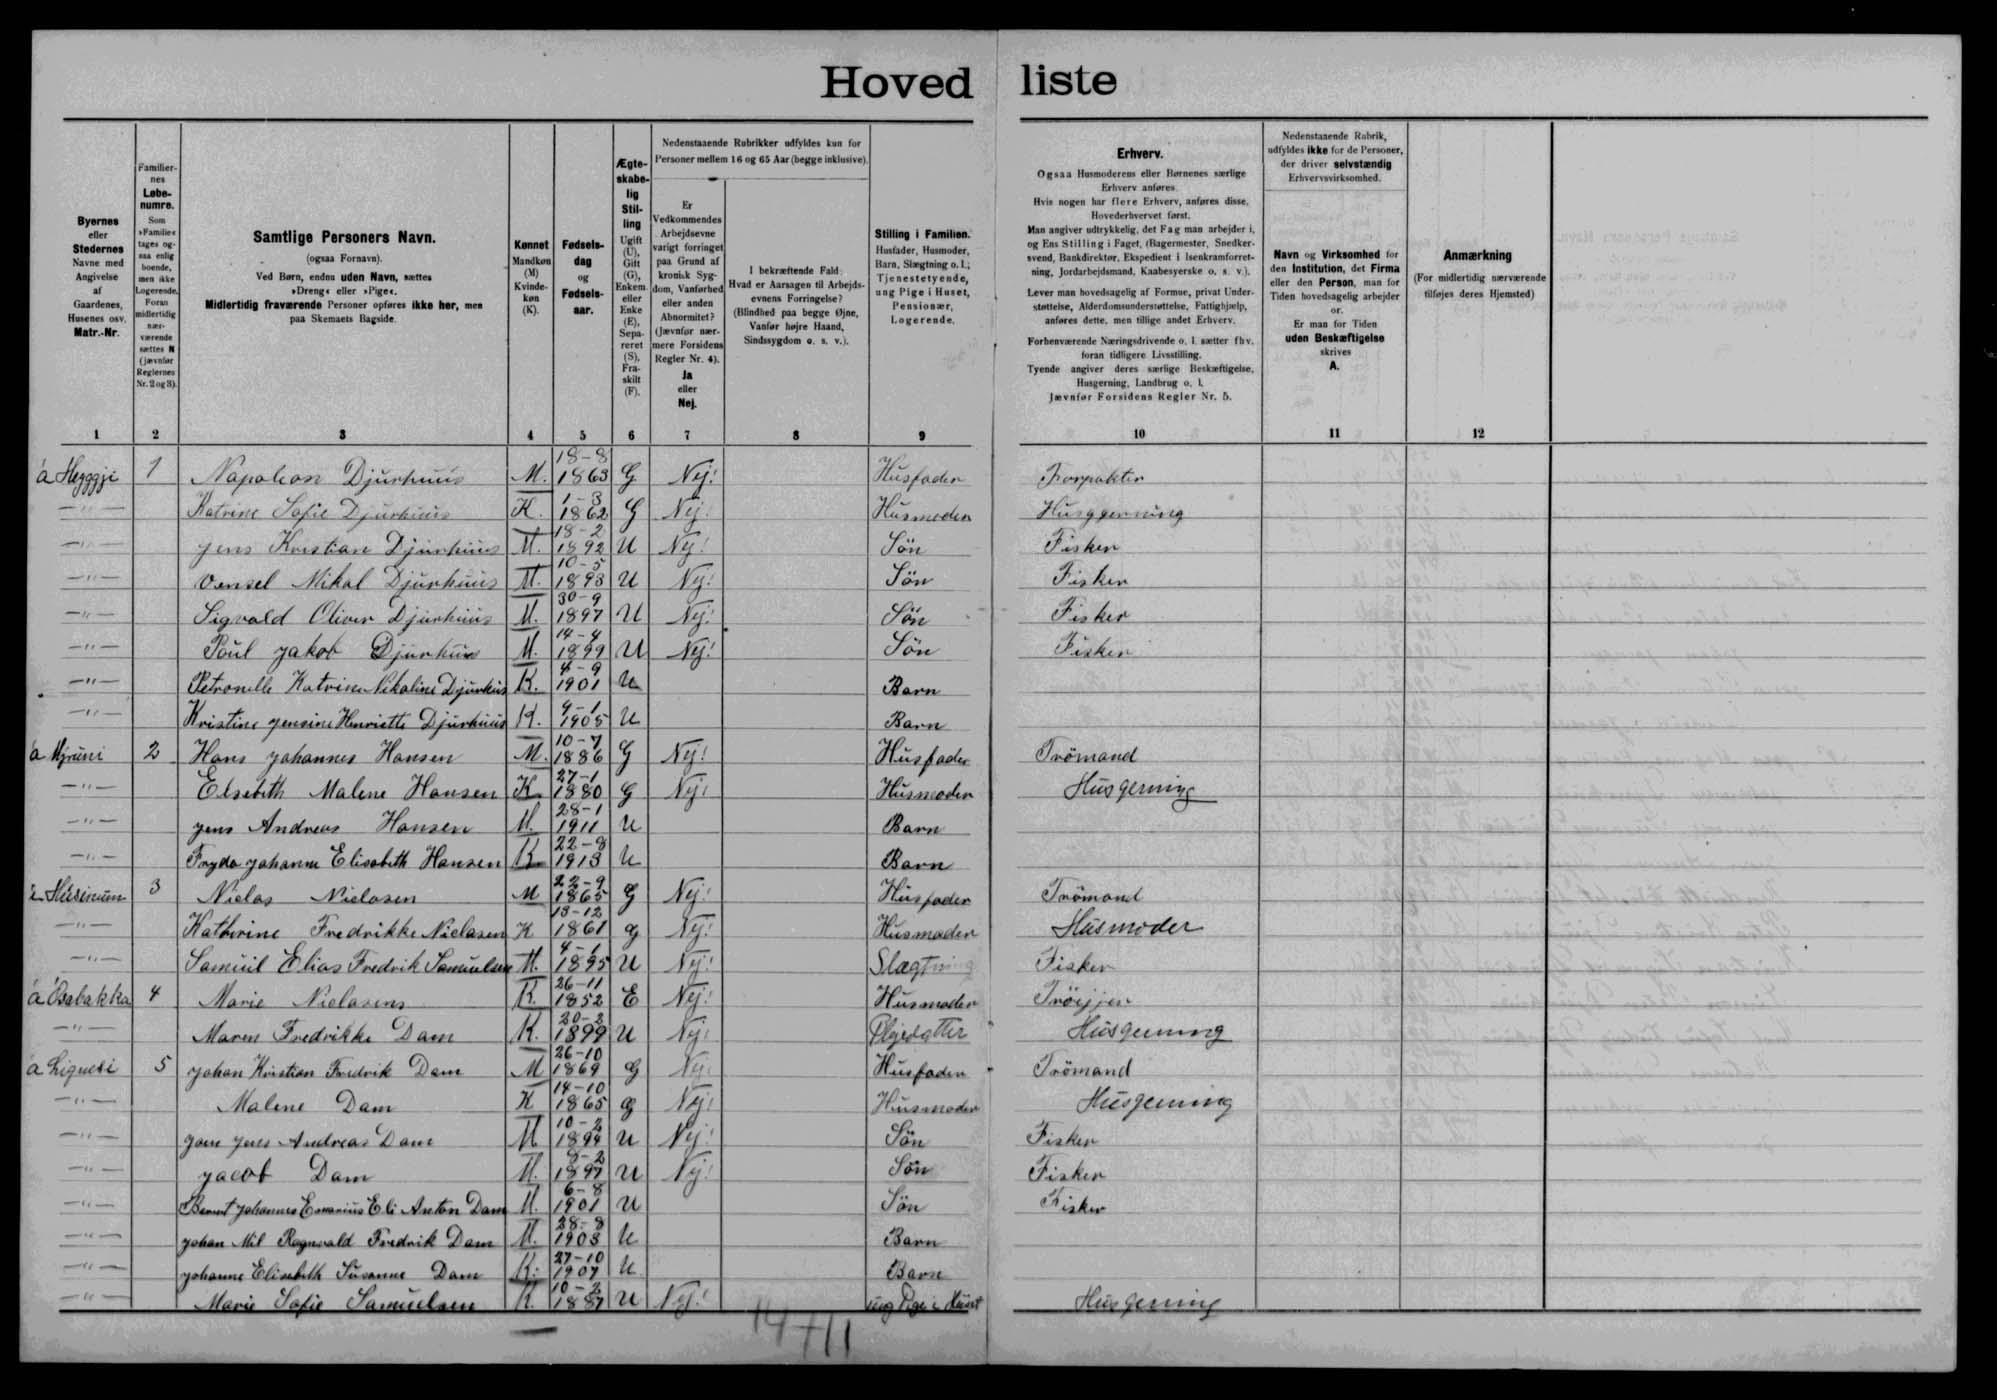 Hoved liste
Byernes eller Stedernes Navne med Angivelse af Gaardenes, Husenes osv. Matr.-Nr.
Familiernes Løbenumre. Som »Familie« tages ogsaa enlig boende, men ikke Logerende. Foran midlertidig nærværende sættes N (jævnfør Reglernes Nr. 2 og 3).
Samtlige Personers Navn.
(ogsaa Fornavn).
Ved Børn, endnu uden Navn, sættes
»Dreng« eller »Pige«.
Midlertidig fraværende Personer opføres ikke her, men
paa Skemaets Bagside.
Kønnet Mandkøn (M) Kvindekøn (K).
Fødselsdag og Fødselsaar.
Ægteskabelig Stilling Ugift (U), Gift (G), Enkem. eller Enke (E), Separeret (S), Fraskilt (F).
Nedenstaaende Rubrikker udfyldes kun for
Personer mellem 16 og 65 Aar (begge inklusive).
Er Vedkommendes Arbejdsevne varigt forringet paa Grund af kronisk Sygdom, Vanførhed eller anden Abnormitet? (Jævnfør nærmere Forsidens Regler Nr. 4). Ja eller Nej.
I bekræftende Fald: Hvad er Aarsagen til Arbejdsevnens Forringelse? (Blindhed paa begge Øjne, Vanfør højre Haand, Sindssygdom o. s. v.).
Stilling i Familien.
Husfader, Husmoder,
Barn, Slægtning o. l.;
Tjenestetyende,
ung Pige i Huset,
Pensionær,
Logerende.
Erhverv.
Ogsaa Husmoderens eller Børnenes særlige
Erhverv anføres.
Hvis nogen har flere Erhverv, anføres disse,
Hovederhvervet først.
Man angiver udtrykkelig, det Fag man arbejder i,
og Ens Stilling i Faget, (Bagermester, Snedker-
svend, Bankdirektør, Ekspedient i Isenkramforret-
ning, Jordarbejdsmand, Kaabesyerske o. s. v.).
Lever man hovedsagelig af Formue, privat Under-
støttelse, Alderdomsunderstøttelse, Fattighjælp,
anføres dette, men tillige andet Erhverv.
Forhenværende Næringsdrivende o. l. sætter fhv.
foran tidligere Livsstilling.
Tyende angiver deres særlige Beskæftigelse,
Husgerning, Landbrug o. l.
Jævnfør Forsidens Regler Nr. 5.
Nedenstaaende Rubrik,
udfyldes ikke for de Personer,
der driver selvstændig
Erhvervsvirksomhed.
Navn og Virksomhed for
den Institution, det Firma
eller den Person, man for
Tiden hovedsagelig arbejder
or.
Er man for Tiden
uden Beskæftigelse
skrives
A.
Anmærkning
(For midlertidig nærværende
tilføjes deres Hjemsted)
1 2 3 4 5 6 7 8 9 10 11 12
á Heyggji 1 Napoleon Djurhuus M. 18-8 1863 G Nej! Husfader Forpakter
—"— Katrine Sofie Djurhuus K. 1-3 1862 G Nej! Husmoder Husggerning
—"— Jens Kristian Djurhuus M. 18-2 1892 U Nej! Sön Fisker
—"— Vensel Mikal Djurhuus M. 10-5 1893 U Nej! Sön Fisker
—"— Sigvald Oliver Djurhuus M. 30-9 1897 U Nej! Sön Fisker
—"— Poul Jakob Djurhuus M. 14-4 1899 U Nej! Sön Fisker
—"— Petronelle Katrine Nikoline Djurhus K. 4-9 1901 U Barn
—"— Kristine Jensine Henriette Djurhuus K. 4-1 1905 U Barn
á 2 Hans Johannes Hansen M. 10-7 1886 G Nej! Husfader Trömand
—"— Elsebeth Malene Hansen K. 27-1 1880 G Nej! Husmoder Husgerning
—"— Jens Andreas Hansen M. 28-1 1911 U Barn
—"— Fryda Johanne Elisabeth Hansen K 22-8 1913 U Barn
Húsinum 3 Niclas Niclasen M 22-9 1865 G Nej! Husfader Trömand
—"— Katherine Fredrikke Niclasen K 13-12 1861 G Nej! Husmoder Husmoder
—"— Samuil Elias Fredrik Samuelsen M. 4-1 1895 U Nej! Slægtning Fisker
á Ósabakka 4 Marie Niclasens K. 26-11 1852 E Nej! Husmoder
—"— Maren Fredrikke Dam K. 20-2 1899 U Nej! Plejedatter Husgerning
á 5 Johan Kristian Fredrik Dam M 26-10 1869 G Nej! Husfader Trömand
—"— Malene Dam K 14-10 1865 G Nej! Husmoder Husgerning
—"— Jens Andreas Dam M 10-2 1894 U Nej! Sön Fisker
—"— Jacob Dam M. 8-2 1897 U Nej! Sön Fisker
—"— Johannes Emanius Eli Anton Dam M. 6-8 1901 U Sön Fisker
—"— Johan Mil Ragnvald Fredrik Dam M. 28-8 1903 U Barn
—"— Johanne Elisabeth Susanne Dam K. 27-10 1907 U Barn
—"— Marie Sofie Samuelsen K. 10-2 1887 U Nej! ung Pige i Huset Husgerning
14 11